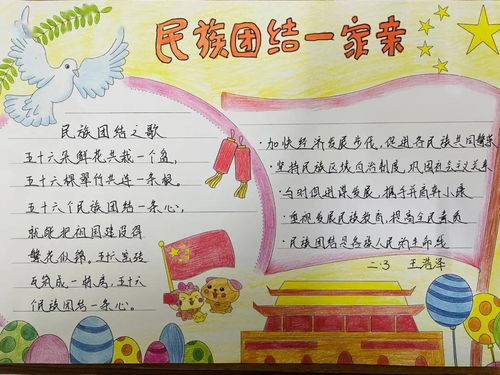 民族团结一家亲
民族团结之歌
五十六朵鲜花共栽一个盆,
五十六棵翠竹共连一条根。
五十六个民族团结一条心,
就能把祖国建设得
繁花似锦。五十六块砖
瓦筑成一栋房,五十六
个民族团结一条心。
·加快经济发展步伐,促进各民族共同繁荣
·坚持民族区域自治制度,巩固社会主义关系
·与时俱进谋发展,携手并肩奔小康
·重视发展民族教育,提高全民素质
·民族团结是各族人民的生命线
二.3 王浩泽